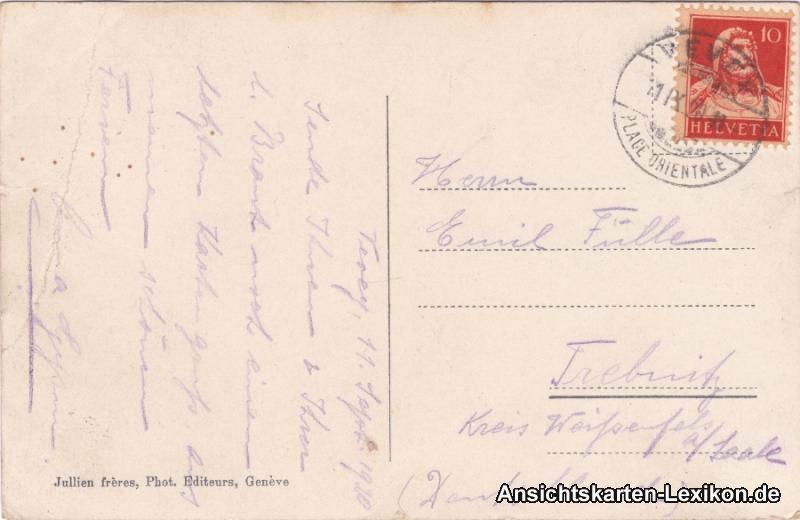 Vevey, 11. Sept. 1920
Sende Ihnen & Ihrer
l. Braut noch einen
letzten Kartengruß aus
meinen schönen
Ferien
10
HELVETIA
VEVEY
PLACE ORIENTALE
Herrn
Emil Fülle
Trebnitz
Kreis Weißenfels
a/Saale
(Deutschland)
Jullien frères, Phot. Editeurs, Genève
Ansichtskarten-Lexikon.de